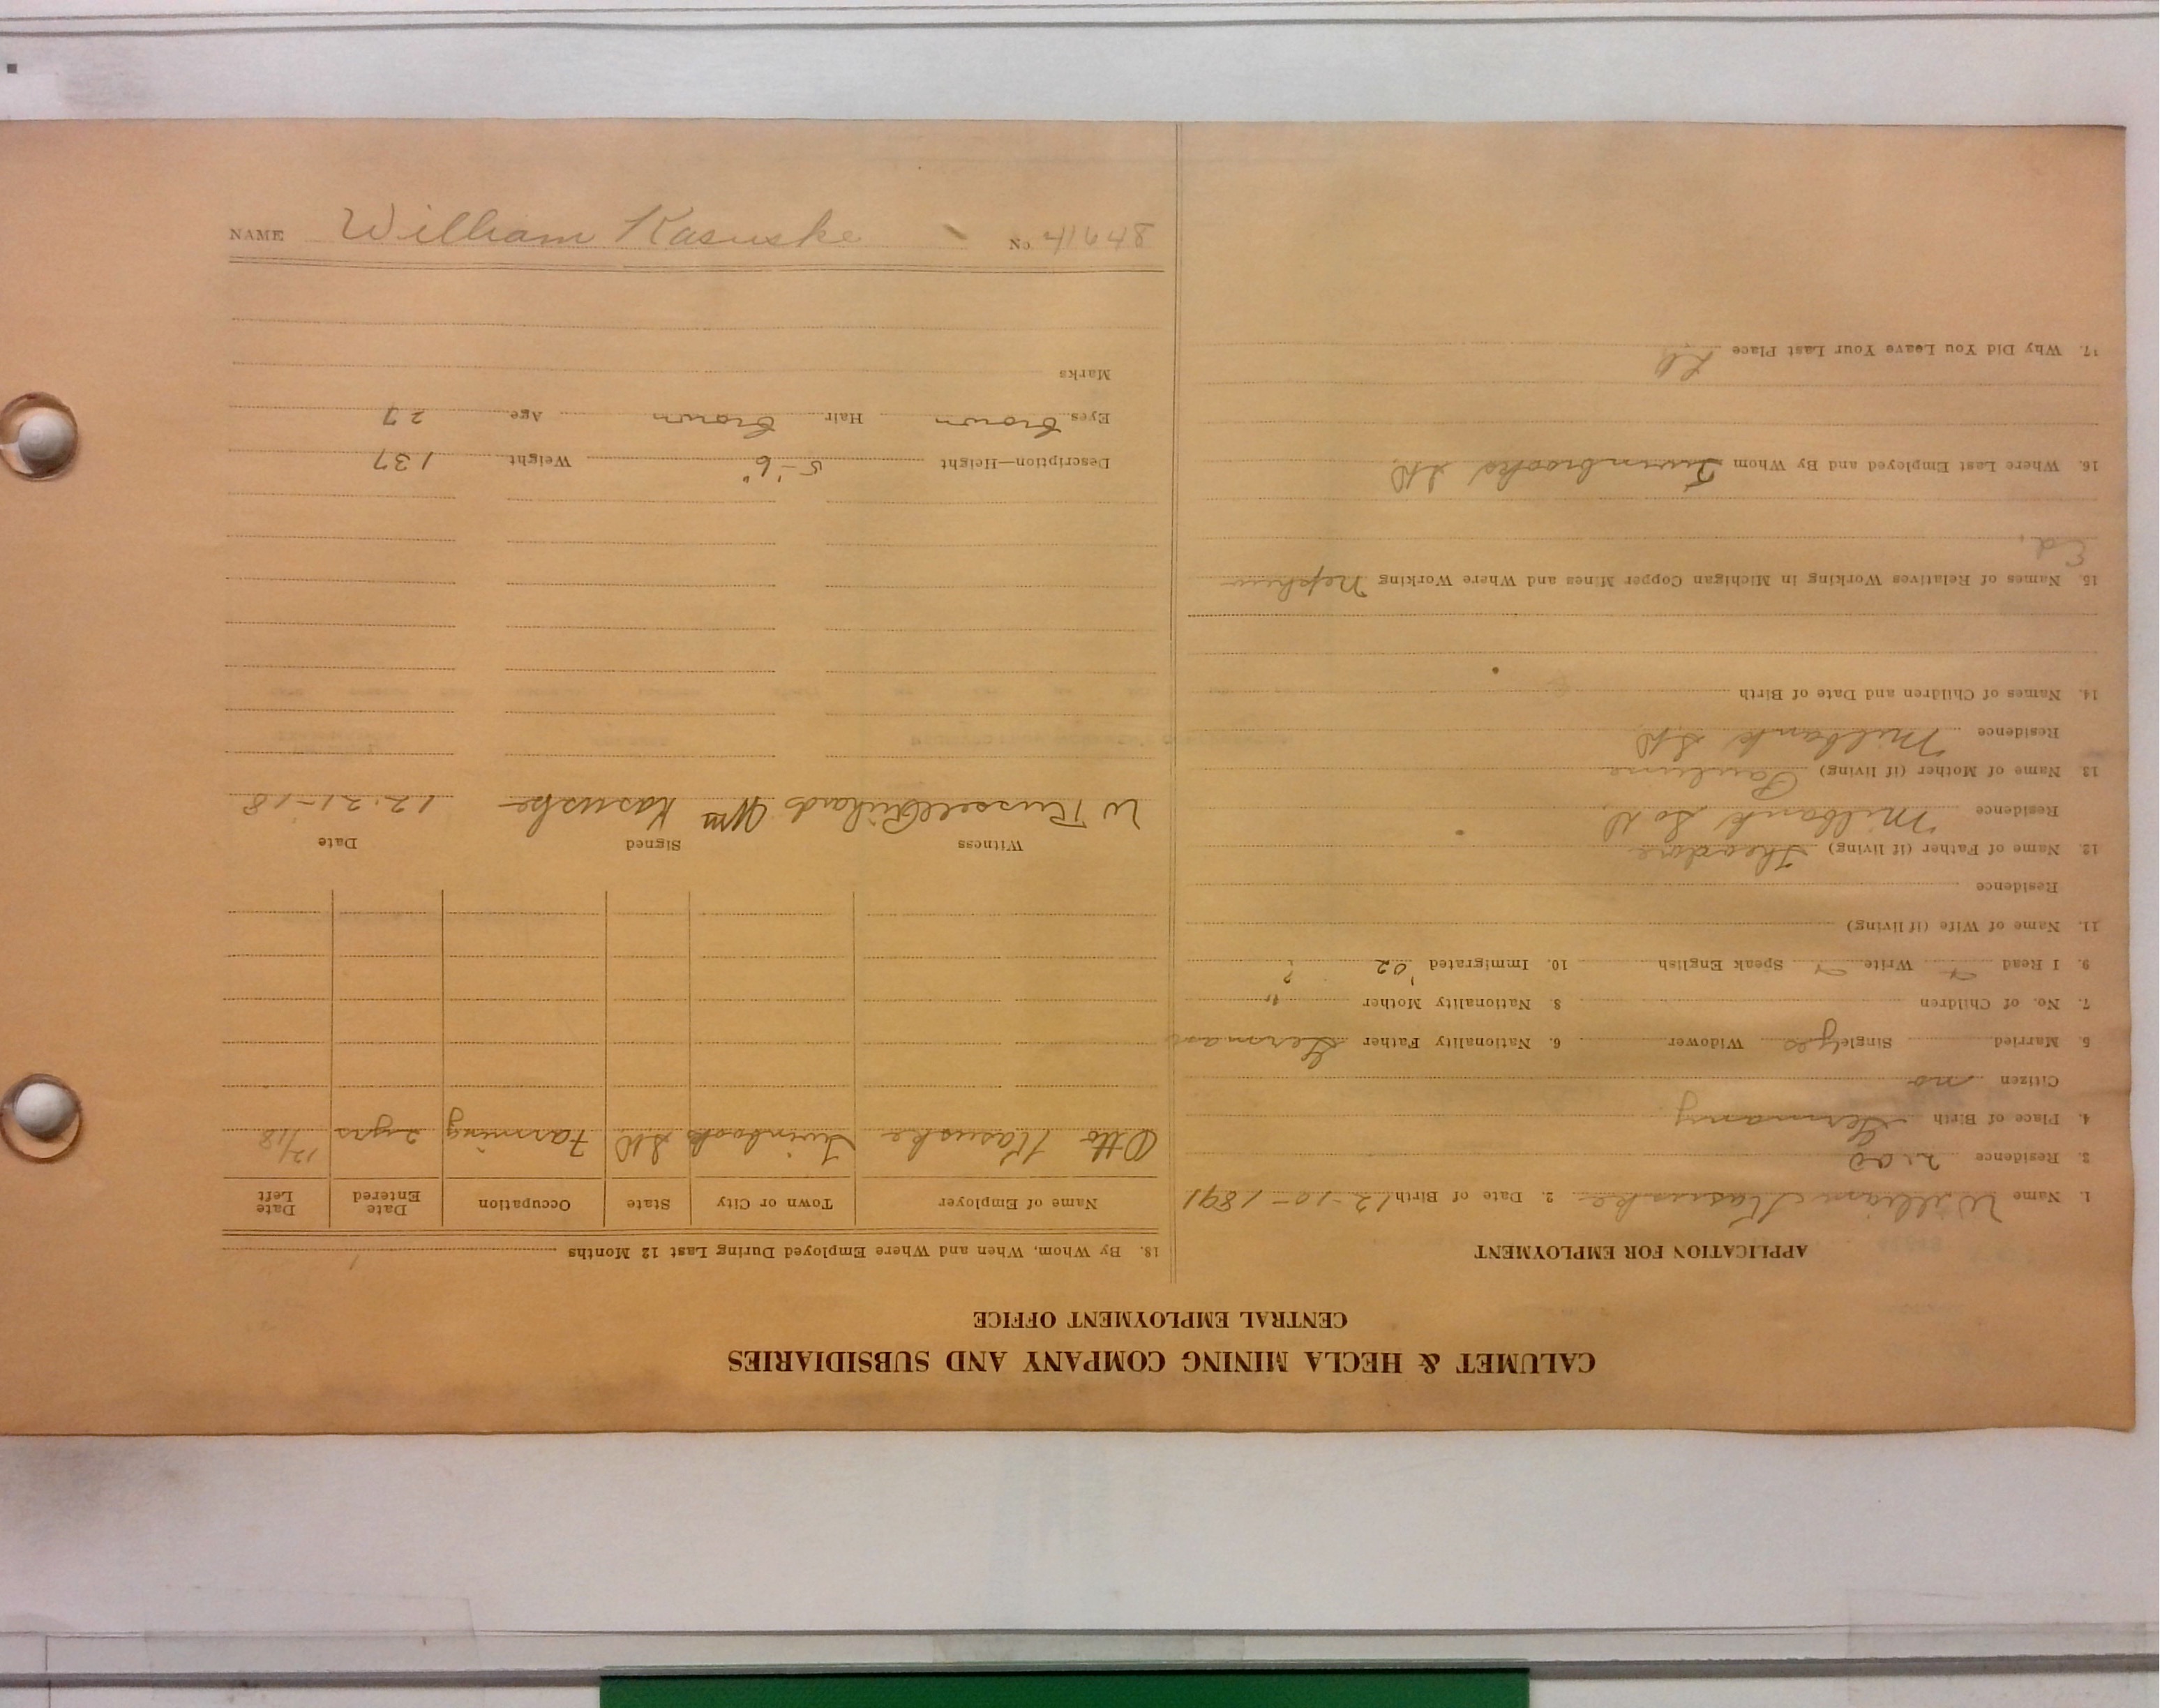 CALUMET & HECLA MINING COMPANY AND SUBSIDIARIES
CENTRAL EMPLOYMENT OFFICE
APPLICATION FOR EMPLOYMENT
1. Name William Kasuske 2. Date of Birth 12-10-1891
3. Residence
4. Place of Birth Germany
Citizen no
5. Married Single yes Widower 6. Nationality Father German
7. No. of Children 8. Nationality Mother "
9. I Read Write Speak English 10. Immigrated '02 ?
11. Name of Wife (if living)
Residence
12. Name of Father (if living) Theodore
Residence Milbank So D
13. Name of Mother (if living) Pauline
Residence Milbank S.D.
14. Names of Children and Date of Birth
15. Names of Relatives Working in Michigan Copper Mines and Where Working nephew
Ed.
16. Where Last Employed and By Whom Twinbrooks S.D.
17. Why Did You Leave Your Last Place
18. By Whom, When and Where Employed During Last 12 Months
Name of Employer Town or City State Occupation Date Entered Date Left
Otto Kasuske Twinbrooks S.D. Farming 2 yrs 12/18
Witness Signed Date
W Russell Richards Wm Kasuske 12-21-18
Description—Height 5'-6" Weight 137
Eyes brown Hair brown Age 27
Marks
NAME William Kasuske No. 41648